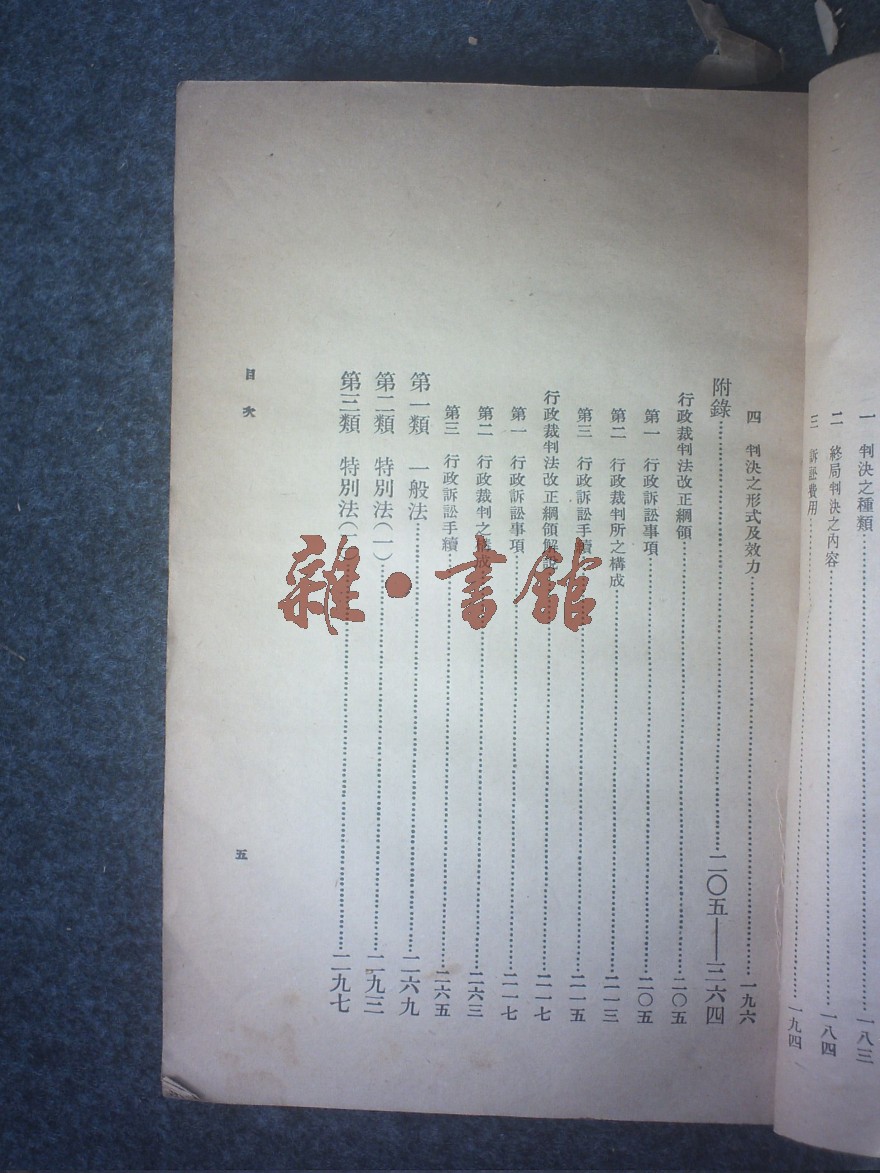 一 判決之種類……一八三
二 終局判決之內容……一八四
三 訴訟費用……一九四
四 判決之形式及效力……一九六
附錄……二〇五——三六四
行政裁判法改正綱領……二〇五
第一 行政訴訟事項……二〇五
第二 行政裁判所之構成……二一三
第三 行政訴訟手續……二一五
行政裁判法改正綱領解說……二一七
第一 行政訴訟事項……二一七
第二 行政裁判之構成……二六三
第三 行政訴訟手續……二六五
第一類 一般法……二六九
第二類 特別法(一)……二九三
第三類 特別法(二)……二九七
目次
五
雜·書館